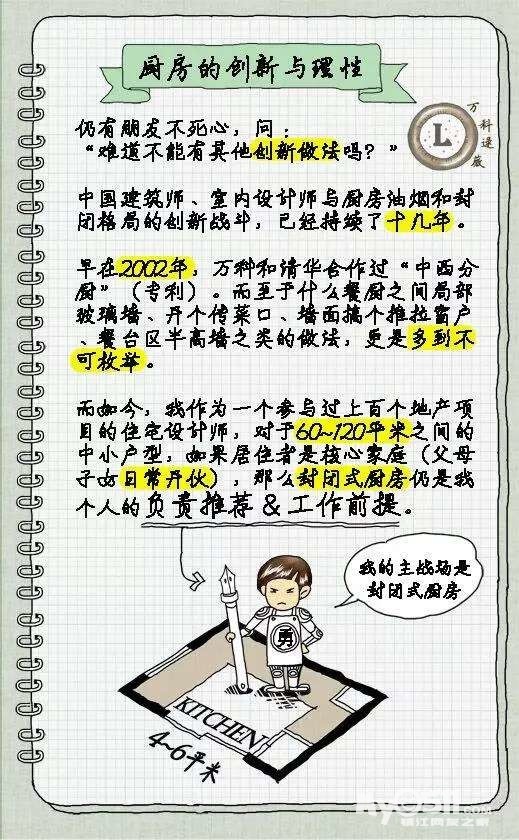 厨房的创新与理性
万科逯薇
L
仍有朋友不死心，问：
“难道不能有其他创新做法吗？”
中国建筑师、室内设计师与厨房油烟和封
闭格局的创新战斗，已经持续了十几年。
早在2002年，万科和清华合作过“中西分
厨”（专利）。而至于什么餐厨之间局部
玻璃墙、开个传菜口、墙面搞个推拉窗户
、餐台区半高墙之类的做法，更是多到不
可枚举。
而如今，我作为一个参与过上百个地产项
目的住宅设计师，对于60~120平米之间的
中小户型，如果居住者是核心家庭（父母
子女日常开伙），那么封闭式厨房仍是我
个人的负责推荐&工作前提。
我的主战场是
封闭式厨房
勇
KITCHEN
4~6平米